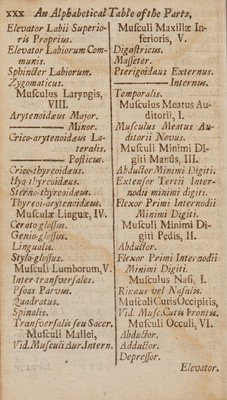 xxx An Alphabetical Table of the Parts,
Elevator Labii Superio-
ris Proprius.
Elevator Labiorum Com-
munis.
Sphincter Labiorum.
Zygomaticus.
Musculus Laryngis,
VIII.
Arytenoidæus Major.
——— Minor.
Crico-arytenoidæus La-
teralis.
——— Posticus.
Crico-thyroidæus.
Hyo-thyroidæus.
Sterno-thyroidæus.
Thyreoi-arytenoidæus.
Musculæ Linguæ, IV.
Ceratoglossus.
Genio-glossus.
Lingualis.
Stylo-glossus.
Musculi Lumborum, V.
Inter-transversales.
Psoas Parvus.
Quadratus.
Spinalis.
Transversalis seu Sacer.
Musculi Mallei,
Vid. Musculi Aur. Intern.
Musculi Maxillæ In-
ferioris, V.
Digastricus.
Masseter.
Pterigoidæus Externus.
——— Internus.
Temporalis.
Musculus Meatus Au-
ditorii, I.
Musculus Meatus Au-
ditorii Novus.
Musculi Minimi Di-
giti Manûs, III.
Abductor Minimi Digiti.
Extensor Tertii Inter-
nodii minimi digiti.
Flexor Primi Internodii
Minimi Digiti.
Musculi Minimi Di-
giti Pedis, II.
Abductor.
Flexor Primi Internodii
Minimi Digiti.
Musculus Nasi, I.
Rinæus vel Nasalis.
Musculi Cutis Occipitis,
Vid. Musc. Cutis Frontis.
Musculi Occuli, VI.
Abductor.
Adductor.
Depressor.
Elevator.